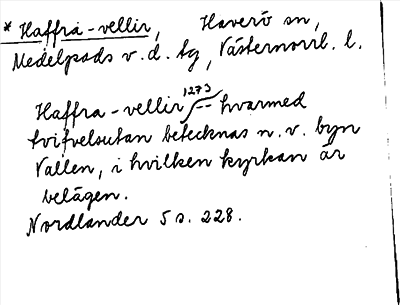 * Haffra-vellir, Haverö sn,
Medelpads v. d. tg, Västernorrl. l.
1273
Haffra-vellir -- hvarmed
tvifvelsutan betecknas n. v. byn
Vallen, i hvilken kyrkan är
belägen.
Nordlander 5 s. 228.